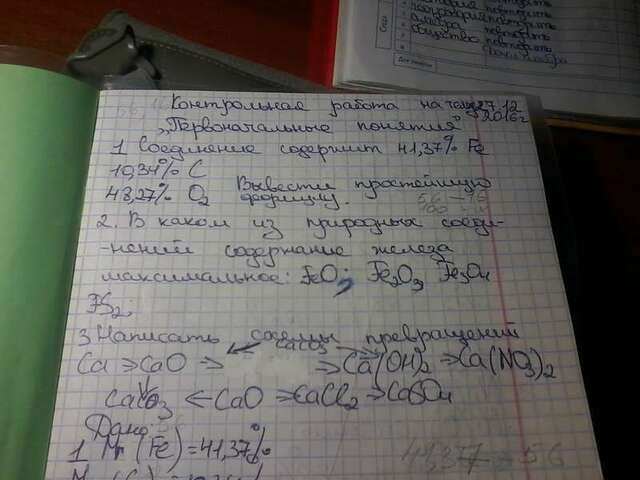 повторить
повторить
алгебра повторить
общество повторить
Контрольная работа на тему 27.12
2016г
„Первоначальные понятия"
1 Соединение содержит 41,37% Fe
10,34% C
48,27% O₂ Вывести простейшую
формулу.
2. В каком из природных соеди-
-нений содержание железа
максимальное: FeO; Fe₂O₃ Fe₃O₄
FS₂;
3 Написать схемы превращений
CaCO₃
Ca → CaO → → Ca(OH)₂ → Ca(NO₃)₂
CaCO₃ ← CaO → CaCl₂ → CaSO₄
Дано
1 Mr (Fe) = 41,37%
41,37 56